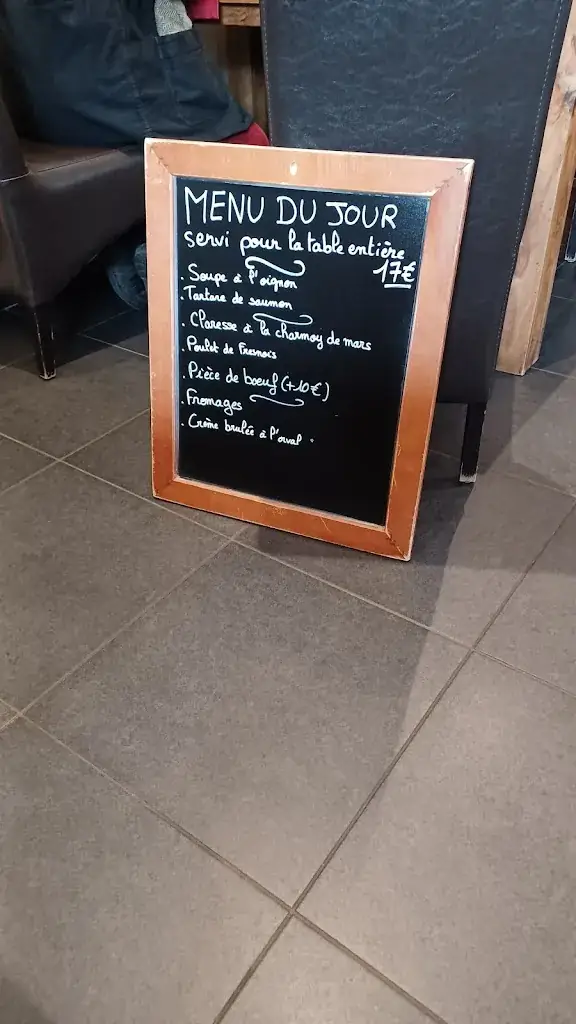 MENU DU JOUR
servi pour la table entière
17€
. Soupe à l'oignon
. Tartare de saumon
. Claresse à la charmoy de mars
. Poulet de Fresnois
. Pièce de boeuf (+10€)
. Fromages
. Crème brulée à l'orval